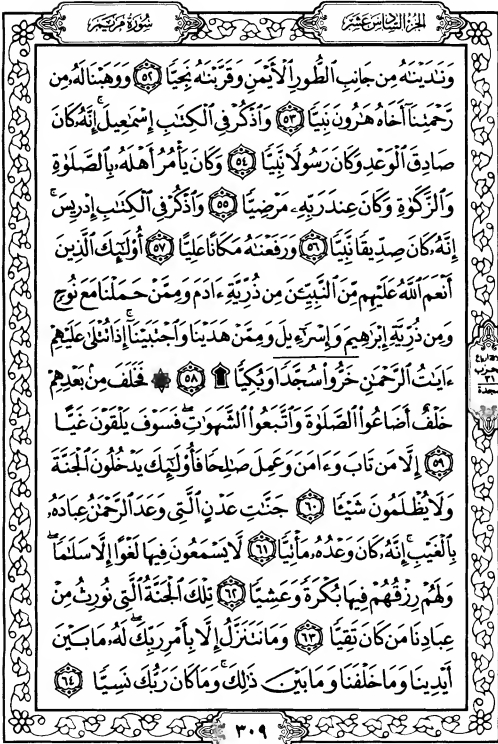 سورة مريم
الجزء السادس عشر
وَنَٰدَيْنَٰهُ مِن جَانِبِ ٱلطُّورِ ٱلْأَيْمَنِ وَقَرَّبْنَٰهُ نَجِيًّا ٥٢ وَوَهَبْنَا لَهُۥ مِن
رَّحْمَتِنَآ أَخَاهُ هَٰرُونَ نَبِيًّا ٥٣ وَٱذْكُرْ فِى ٱلْكِتَٰبِ إِسْمَٰعِيلَ ۚ إِنَّهُۥ كَانَ
صَادِقَ ٱلْوَعْدِ وَكَانَ رَسُولًا نَّبِيًّا ٥٤ وَكَانَ يَأْمُرُ أَهْلَهُۥ بِٱلصَّلَوٰةِ
وَٱلزَّكَوٰةِ وَكَانَ عِندَ رَبِّهِۦ مَرْضِيًّا ٥٥ وَٱذْكُرْ فِى ٱلْكِتَٰبِ إِدْرِيسَ ۚ
إِنَّهُۥ كَانَ صِدِّيقًا نَّبِيًّا ٥٦ وَرَفَعْنَٰهُ مَكَانًا عَلِيًّا ٥٧ أُو۟لَٰٓئِكَ ٱلَّذِينَ
أَنْعَمَ ٱللَّهُ عَلَيْهِم مِّنَ ٱلنَّبِيِّـۧنَ مِن ذُرِّيَّةِ ءَادَمَ وَمِمَّنْ حَمَلْنَا مَعَ نُوحٍ
وَمِن ذُرِّيَّةِ إِبْرَٰهِيمَ وَإِسْرَٰٓءِيلَ وَمِمَّنْ هَدَيْنَا وَٱجْتَبَيْنَآ ۚ إِذَا تُتْلَىٰ عَلَيْهِمْ
ءَايَٰتُ ٱلرَّحْمَٰنِ خَرُّوا۟ سُجَّدًا وَبُكِيًّا ۩ ٥٨ ۞ فَخَلَفَ مِنۢ بَعْدِهِمْ
خَلْفٌ أَضَاعُوا۟ ٱلصَّلَوٰةَ وَٱتَّبَعُوا۟ ٱلشَّهَوَٰتِ ۖ فَسَوْفَ يَلْقَوْنَ غَيًّا
٥٩ إِلَّا مَن تَابَ وَءَامَنَ وَعَمِلَ صَٰلِحًا فَأُو۟لَٰٓئِكَ يَدْخُلُونَ ٱلْجَنَّةَ
وَلَا يُظْلَمُونَ شَيْـًٔا ٦٠ جَنَّٰتِ عَدْنٍ ٱلَّتِى وَعَدَ ٱلرَّحْمَٰنُ عِبَادَهُۥ
بِٱلْغَيْبِ ۚ إِنَّهُۥ كَانَ وَعْدُهُۥ مَأْتِيًّا ٦١ لَّا يَسْمَعُونَ فِيهَا لَغْوًا إِلَّا سَلَٰمًا ۖ
وَلَهُمْ رِزْقُهُمْ فِيهَا بُكْرَةً وَعَشِيًّا ٦٢ تِلْكَ ٱلْجَنَّةُ ٱلَّتِى نُورِثُ مِنْ
عِبَادِنَا مَن كَانَ تَقِيًّا ٦٣ وَمَا نَتَنَزَّلُ إِلَّا بِأَمْرِ رَبِّكَ ۖ لَهُۥ مَا بَيْنَ
أَيْدِينَا وَمَا خَلْفَنَا وَمَا بَيْنَ ذَٰلِكَ ۚ وَمَا كَانَ رَبُّكَ نَسِيًّا ٦٤
الحزب
٣١
سجدة
٣٠٩